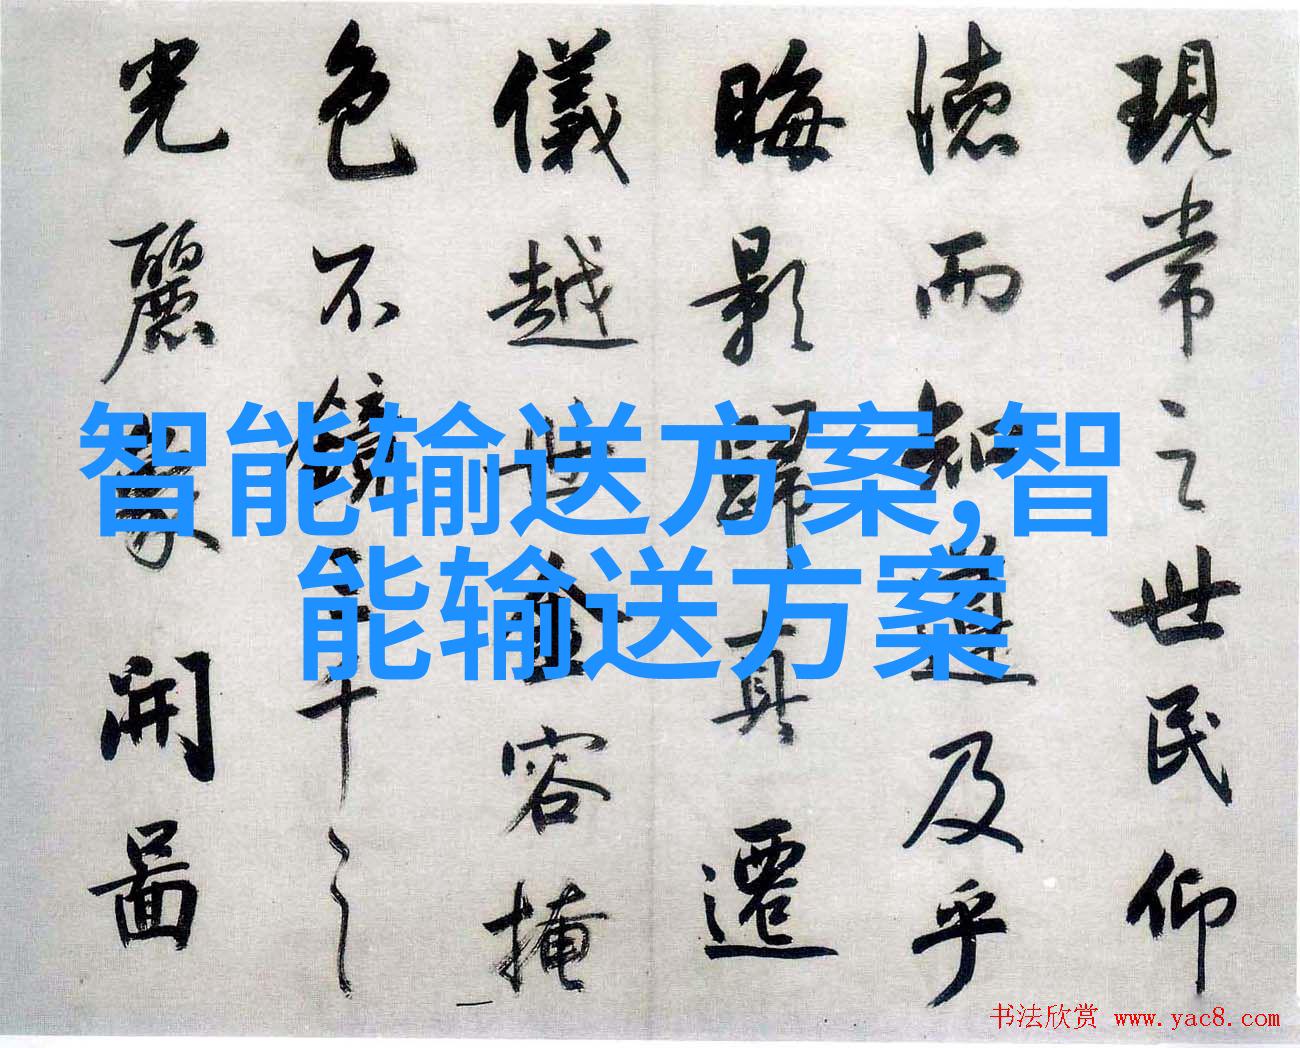 現常之世民仰
德而知遵及乎
晦影歸真遷
儀越世金容掩
色不鏡三千之
光麗象開圖
智能输送方案,智
能输送方案
书法欣赏 www.yac8.com